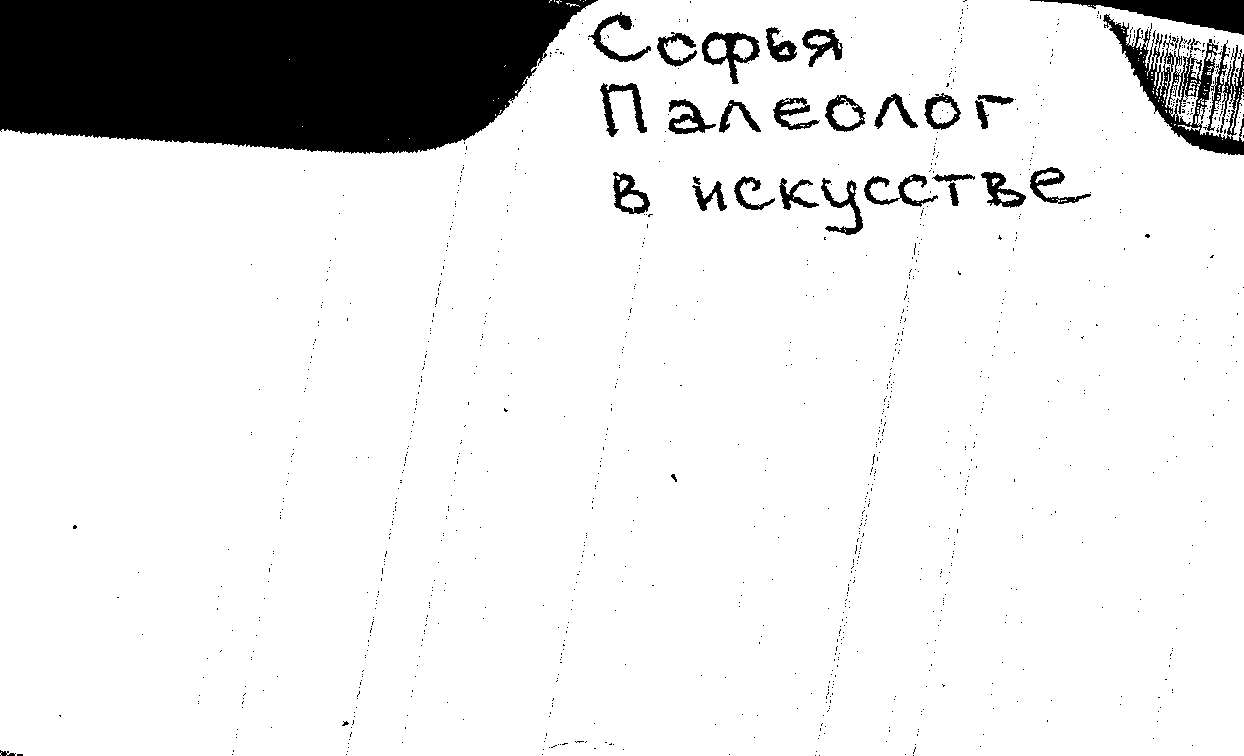 Софья
Палеолог
в искусстве